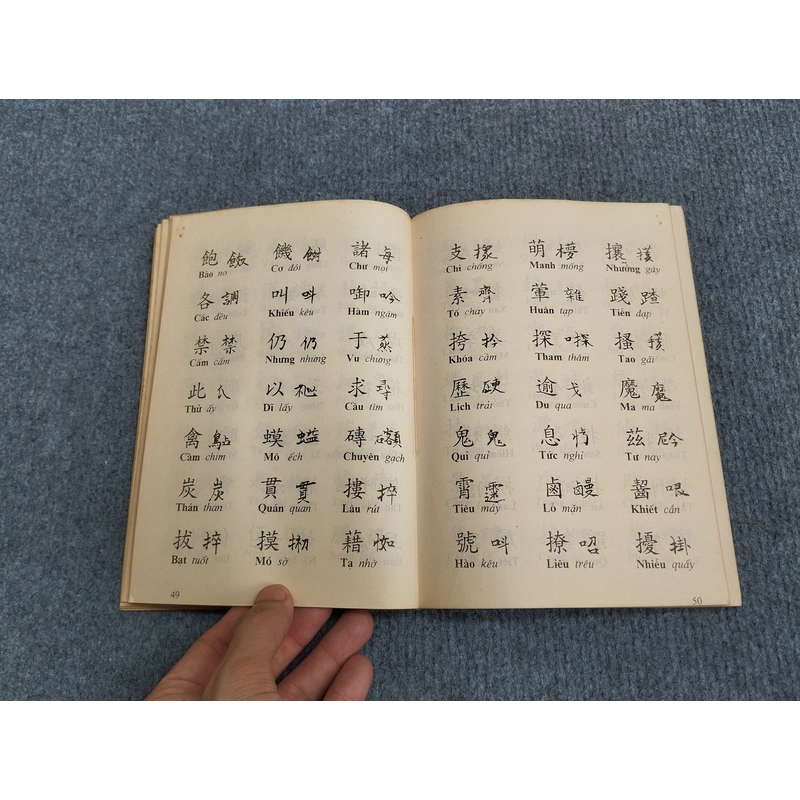 飽 Bão no 饑 Cơ đói 諸 Chư mọi 每
各 調 Các đều 叫 呌 Khiếu kêu 啣 吟 Hàm ngậm
禁 禁 Cấm cấm 仍 仍 Nhưng nhưng 于 蒸 Vu chưng
此 Thử ấy 以 Dĩ lấy 求 尋 Cầu tìm
禽 Cầm chim 蟆 Mô ếch 磚 Chuyên gạch
炭 炭 Thán than 貫 貫 Quán quan 摟 捽 Lâu rút
拔 捽 Bạt tuốt 摸 Mô sờ 藉 Tạ nhờ
49
支 Chi chống 萌 Manh mống 攘 Nhưỡng gãy
素 齋 Tố chay 葷 雜 Huân tạp 踐 踏 Tiễn đạp
挎 Khóa cầm 探 Tham thăm 搔 Tao gãi
歷 Lịch trải 逾 戈 Du qua 魔 魔 Ma ma
鬼 鬼 Quỉ quỉ 息 Tức nghỉ 茲 Tư nay
霄 Tiêu mây 鹵 Lỗ mặn 齧 哏 Khiết cắn
號 呌 Hào kêu 撩 𠰉 Liêu trêu 擾 掛 Nhiễu quấy
50